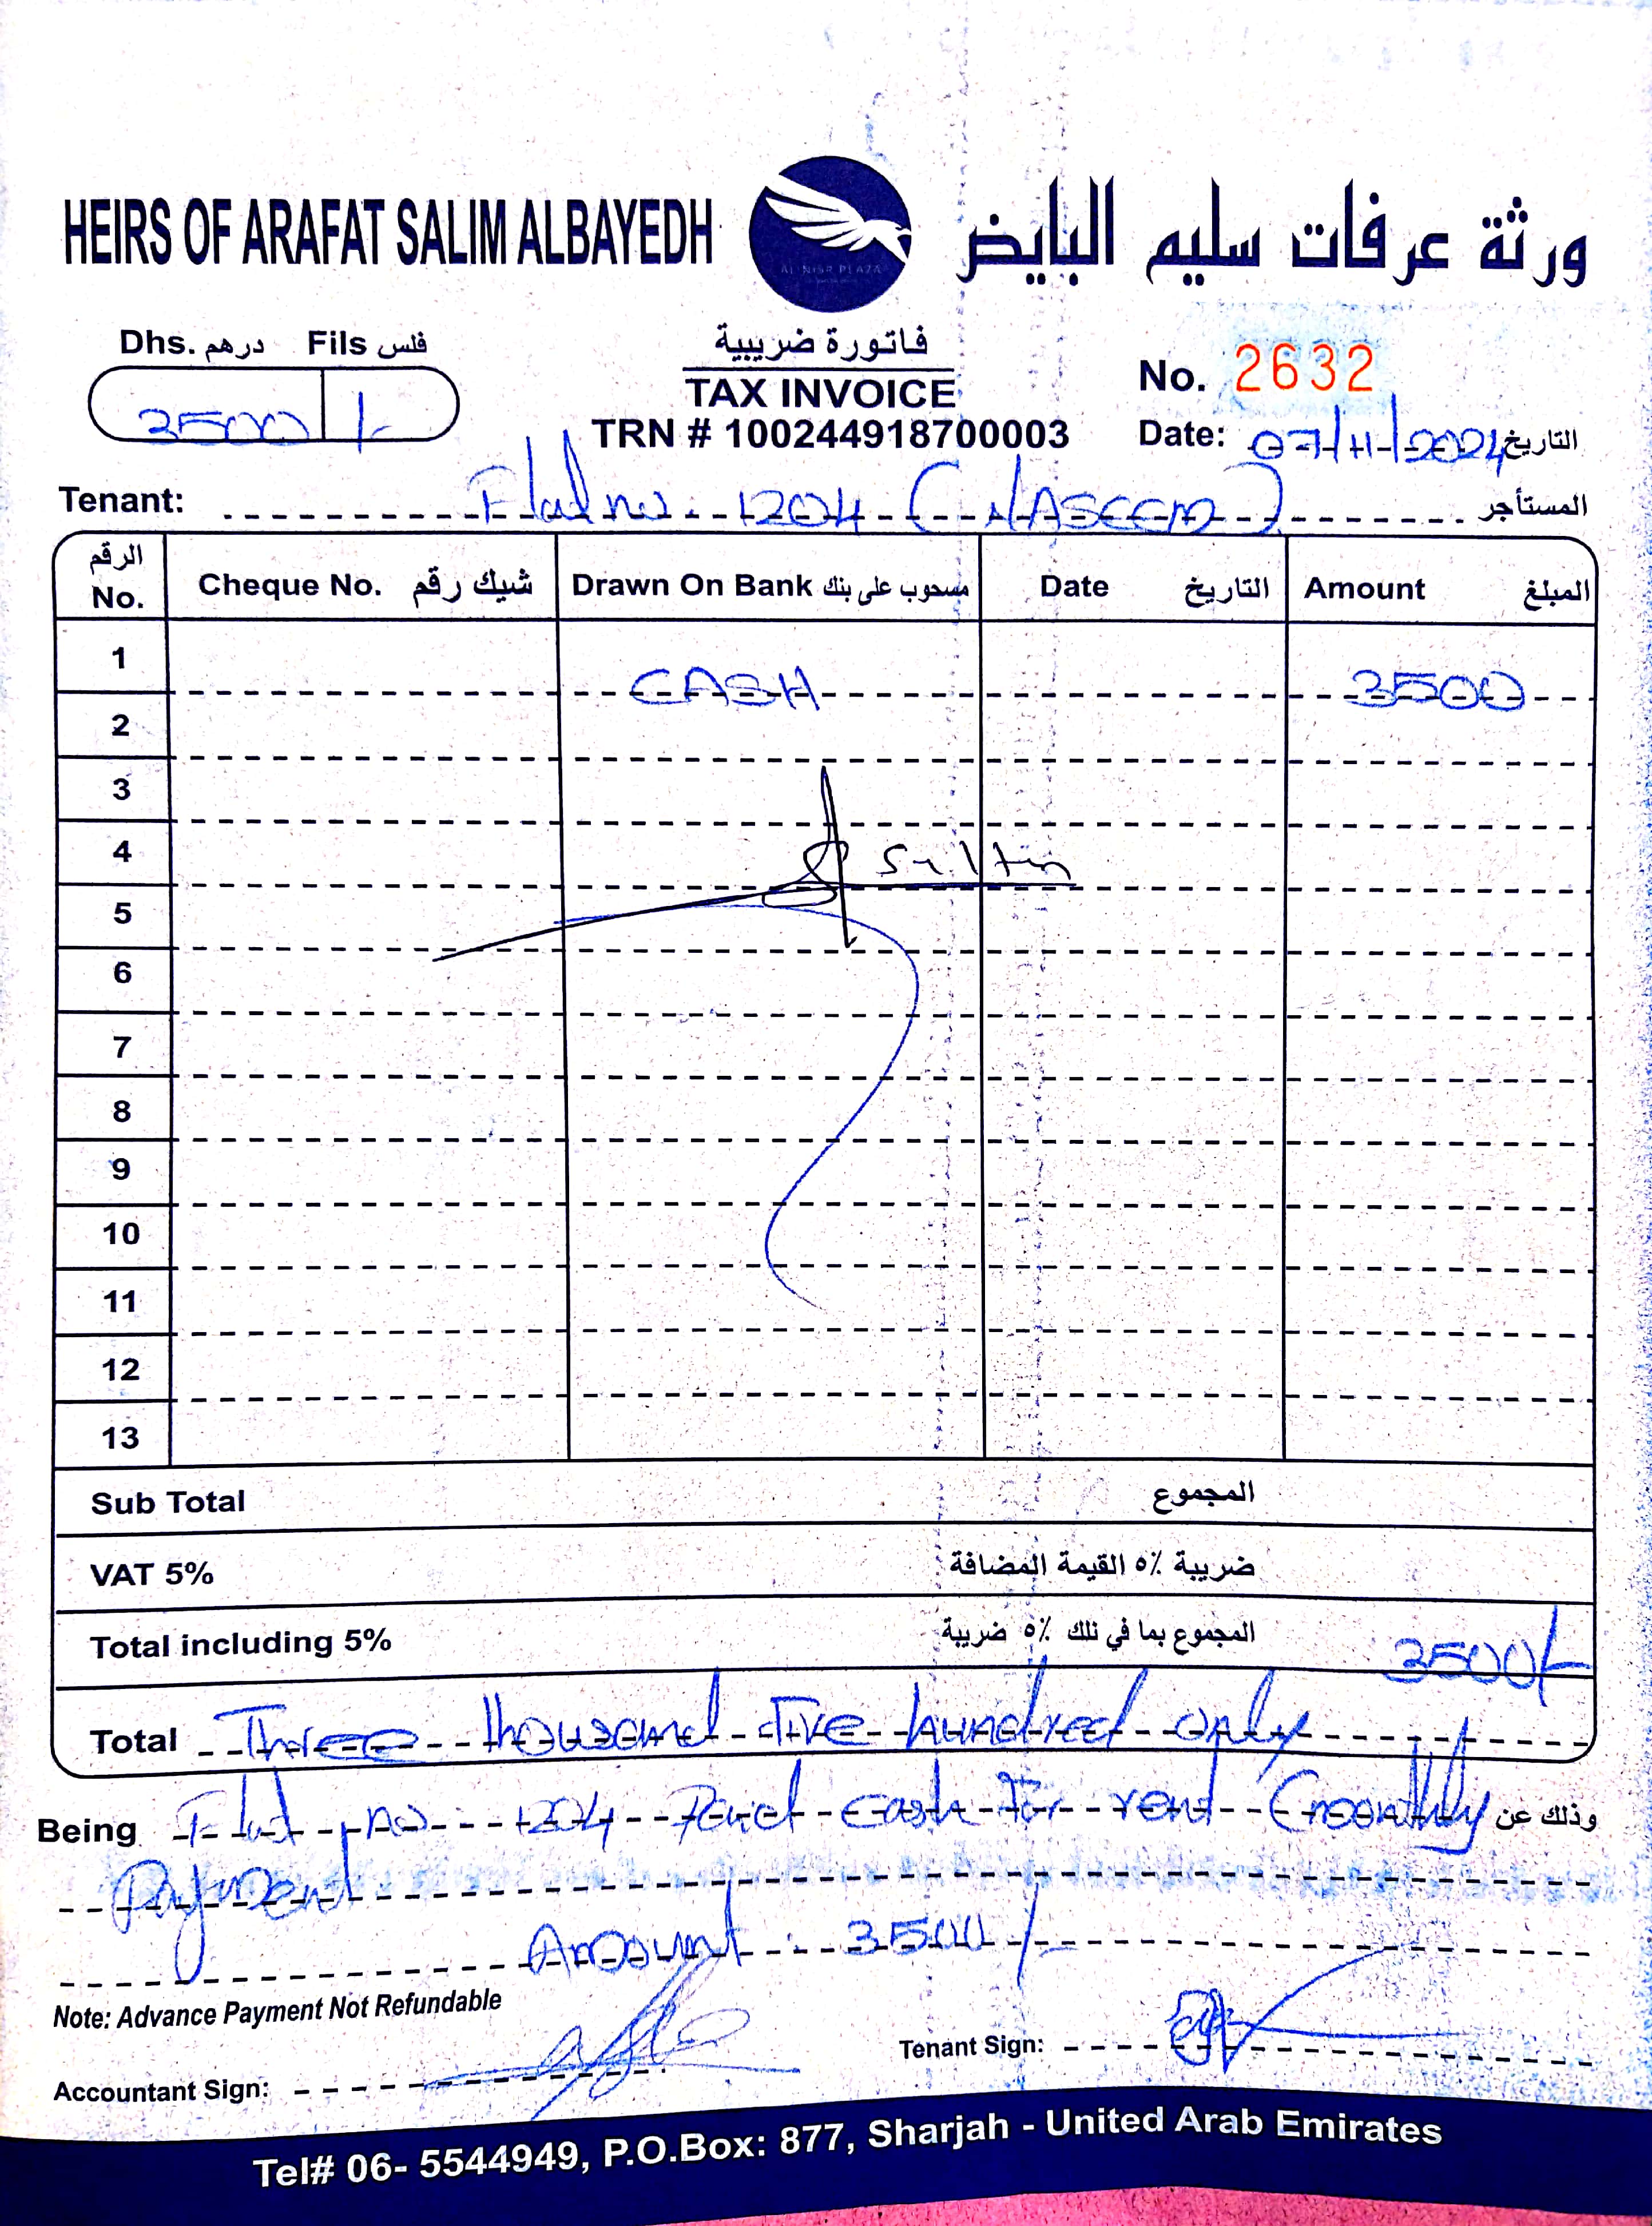 HEIRS OF ARAFAT SALIM ALBAYEDH
AL NISR PLAZA
ورثة عرفات سليم البايض
Dhs. درهم Fils فلس
3500 /-
فاتورة ضريبية
TAX INVOICE
TRN # 100244918700003
No. 2632
Date: 07/11/2024 التاريخ
Tenant: Flat no. 1204 (NASEEM) المستأجر
الرقم No. Cheque No. شيك رقم Drawn On Bank مسحوب على بنك Date التاريخ Amount المبلغ
1 CASH 3500
2
3
4 Sultan
5
6
7
8
9
10
11
12
13
Sub Total المجموع
VAT 5% ضريبة ٥٪ القيمة المضافة
Total including 5% المجموع بما في تلك ٥٪ ضريبة 3500/-
Total Three thousand Five hundred only
Being Flat no 1204 Paid cash for rent (monthly وذلك عن
Payment
Amount : 3500/-
Note: Advance Payment Not Refundable
Accountant Sign:
Tenant Sign:
Tel# 06- 5544949, P.O.Box: 877, Sharjah - United Arab Emirates